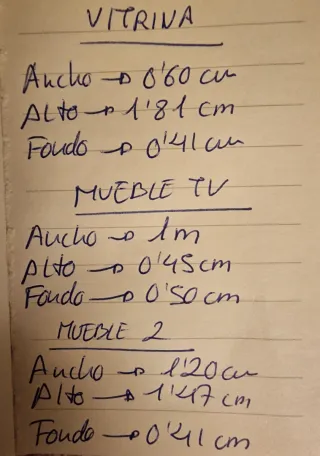 VITRINA
Ancho → 0'60 cm
Alto → 1'81 cm
Fondo → 0'41 cm
MUEBLE TV
Ancho → 1m
Alto → 0'45 cm
Fondo → 0'50 cm
MUEBLE 2
Ancho → 1'20 cm
Alto → 1'47 cm
Fondo → 0'41 cm